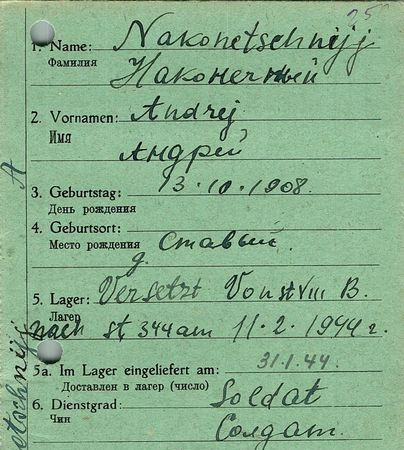 25
1. Name: Nakonetschnijj
Фамилия Наконечный
2. Vornamen: Andrej
Имя
Андрей
3. Geburtstag: 13.10.1908.
День рождения
4. Geburtsort:
Место рождения д. Ставый.
5. Lager: Versetzt Von st VIII B.
Лагер
nach st 344 am 11.2.1944 г.
5a. Im Lager eingeliefert am: 31.1.44.
Доставлен в лагер (число)
6. Dienstgrad: Soldat
Чин
Солдат.
A
etschnijj